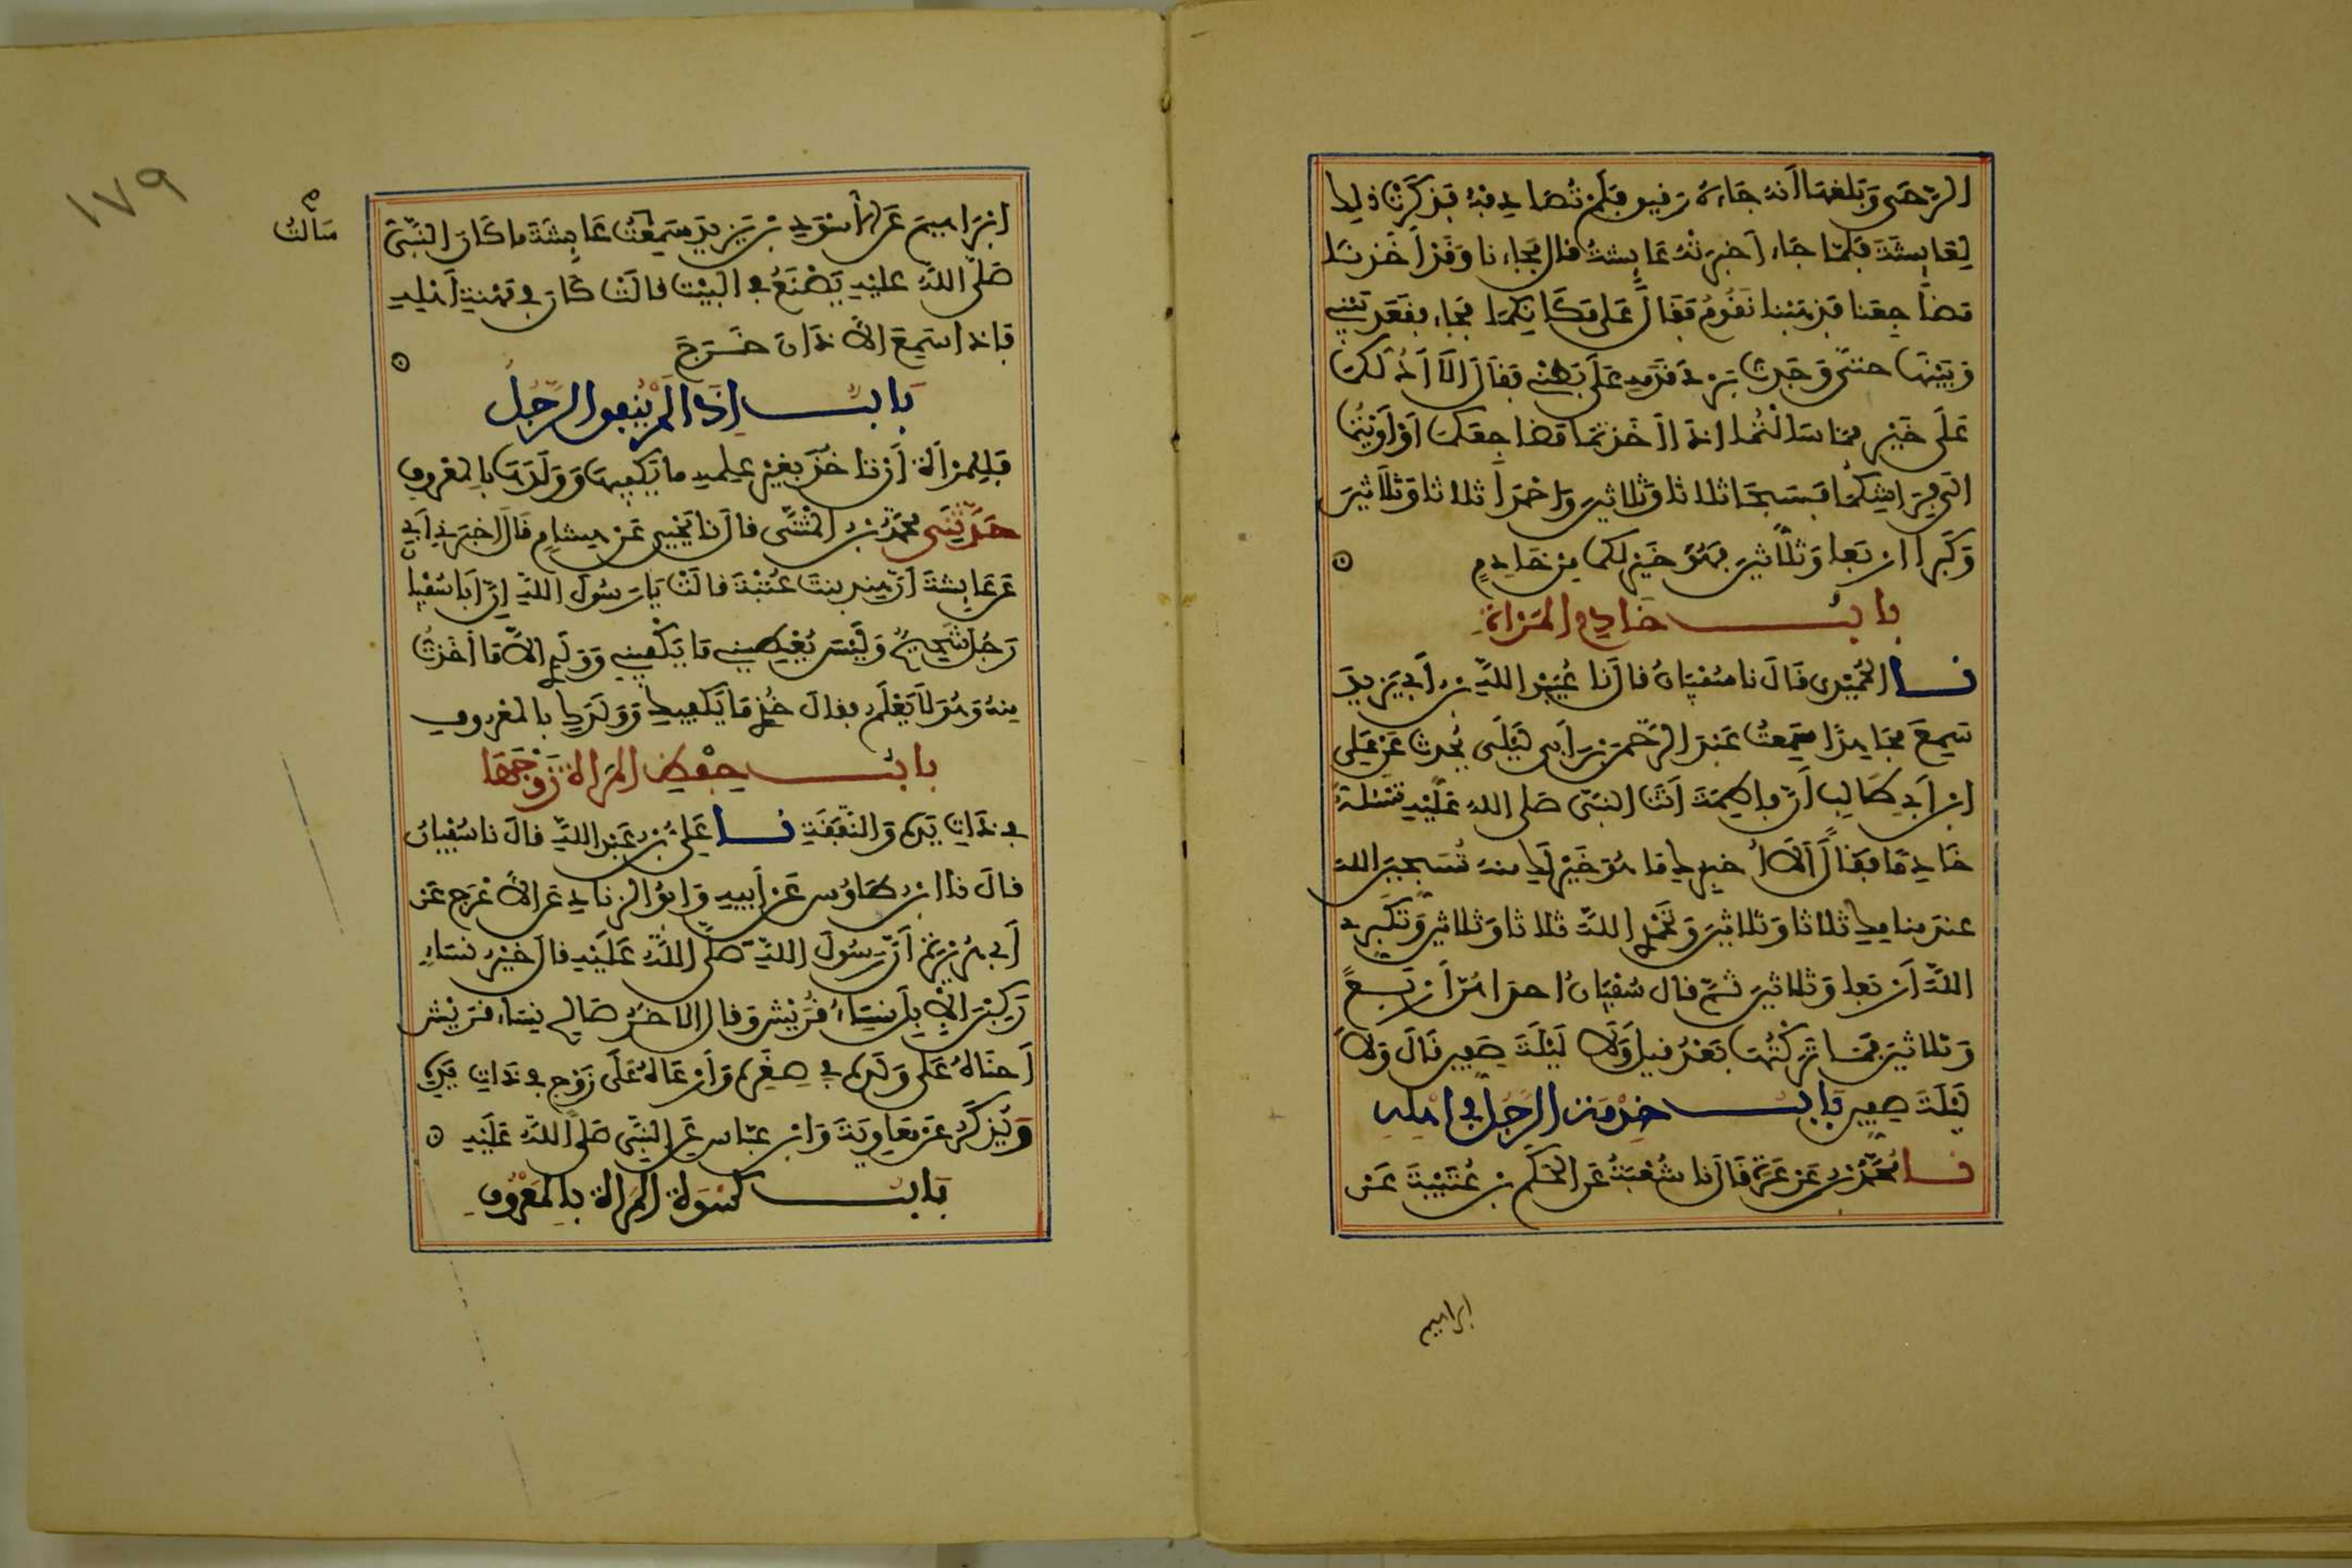 الرَّحَى وَبَلَغَهَا أنهُ جَاءَهُ رَفيق فَلَمْ تُصَادِفْهُ فَذكَرَتْ ذلِك
لِعَايِشَةَ فَلَمَّا جَاءَ أخبرَتْهُ عَايِشةُ قال فجاءنا وَقَدْ أخَذنَا
مَضَاجِعَنا فَذهَبْنا نَقُومُ فَقَالَ عَلى مَكَانِكُمَا فجَاء فقَعَدَ بَيْنِي
وَبَيْنَهَا حتّى وَجَدتُ بَرْدَ قَدَمِهِ عَلَى بَطْنِي فَقَالَ ألا أدُلّكُمَا
عَلَى خَيْرٍ مِمَّا سَألْتُمَا إذا أخَذتمَا مَضَاجِعَكُمَا أوْ أوَيْتُمَا
إلى فِرَاشِكُمَا فَسَبِّحَا ثلاثا وَثلاثينَ وَاحْمَدَا ثلاثا وَثَلاثينَ
وَكَبِّرا أربَعا وَثلاثينَ فهُوَ خَيْر لكما مِن خَادِمٍ
بابُ خَادِم المَرْأةِ
نا الحُمَيْدِى قَالَ نا سُفْيَانُ قالَ نا عُبَيْدُ اللهِ بن أبي يَزيدَ
سَمِعَ مُجَاهِدًا سَمِعتُ عَبْدَ الرَّحْمَنِ بنَ أبى لَيْلَى يُحدث عَنْ عَلى
ابن أبي طَالِب أنّ فاطِمَةَ أتَتْ النبى صَلى الله عَلَيْهِ تَسْئلهُ
خَادِمًا فقَالَ ألاَ أُخبِرك مَا هُوَ خَيْر لَك منه تُسَبِّحِينَ الله
عندَ منامِك ثلاثا وَثلاثينَ وَتَحْمَدِينَ اللهَ ثلاثا وَثلاثينَ وَتُكَبِّرِينَ
اللهَ أربَعا وَثلاثينَ ثُمّ قال سُفْيَانُ إحدَاهُنّ أربَعٌ
وَثلاثينَ فَمَا تَرَكْتُهَا بَعْدُ قيلَ وَلاَ لَيْلَةَ صِفِّين قَالَ وَلاَ
لَيْلَةَ صِفّين بَابُ خِدْمَةِ الرَّجُلِ في أهْلِهِ
نا مُحَمّدُ بن عَرْعَرَةَ قَالَ نا شُعْبَةُ عَن الحَكَمِ بن عُتَيْبَةَ عَنْ
ابراهيم
١٧٩
سَألتُ
إبْرَاهِيمَ عَنِ الأسْوَدِ بْنِ يَزِيدَ سَمِعْتُ عَايِشَةَ مَا كَانَ النَّبِيّ
صَلّى اللهُ عليْهِ يَصْنَعُ في البَيْت قالَتْ كَانَ في مِهْنَةِ أهْلِهِ
فإذا سَمِعَ الأذَانَ خَرَجَ
بَابُ إذَا لَمْ يُنْفِق الرَّجُلُ
فَلِلْمَرْأةِ أنْ تَاخُذ بغَيْرِ عِلمِهِ مَا يَكْفِيهَا وَوَلَدَهَا بِالمَعْرُوفِ
حَدَّثَنَى مُحَمّدُ بْن المُثَنَّى قالَ نا يَحْيَى عَنْ هِشامٍ قَالَ أخبَرَني أبي
عَنْ عَايِشةَ أنّ هِند بنتَ عُتْبَةَ قالَتْ يَا رَسُولَ اللهِ إنّ أبَا سُفْيانَ
رَجُل شَحِيحٌ وَلَيْسَ يُعْطِيني مَا يَكْفِيني وَوَلَدِي إلاّ مَا أخَذتُ
مِنهُ وَهُوَ لاَ يَعْلَم فقالَ خُذِي مَا يَكْفِيكِ وَوَلَدَكِ بالمَعْرُوفِ
بابُ حِفْظِ المَرأة زَوْجَهَا
في ذَاتِ يَدِهِ وَالنّفَقَةِ نا عَلِيُّ بْنُ عَبْدِ اللهِ قالَ نا سُفْيانُ
قالَ نا ابن طَاوُس عَن أبِيهِ وَأبُو الزنادِ عَن الأعْرَجِ عَنْ
أبي هُرَيْرَةَ أنّ رَسُولَ اللهِ صَلّى اللهُ عَلَيْهِ قالَ خَيْرُ نِسَاءٍ
رَكِبْنَ الإبِلَ نِسَاءُ قُرَيْش وَقال الآخَرُ صَالِحُ نِسَاء قُرَيْش
أحنَاهُ عَلَى وَلَدِهِ في صِغَرِهِ وَأرْعَاهُ عَلَى زَوْج في ذَاتِ يَدِهِ
وَيُذكَرُ عَنْ مُعَاوِيَةَ وَابن عبّاس عَن النبى صَلى اللهُ عَلَيْهِ
بَابُ كسْوَةِ المَرأةِ بِالمَعْرُوفِ